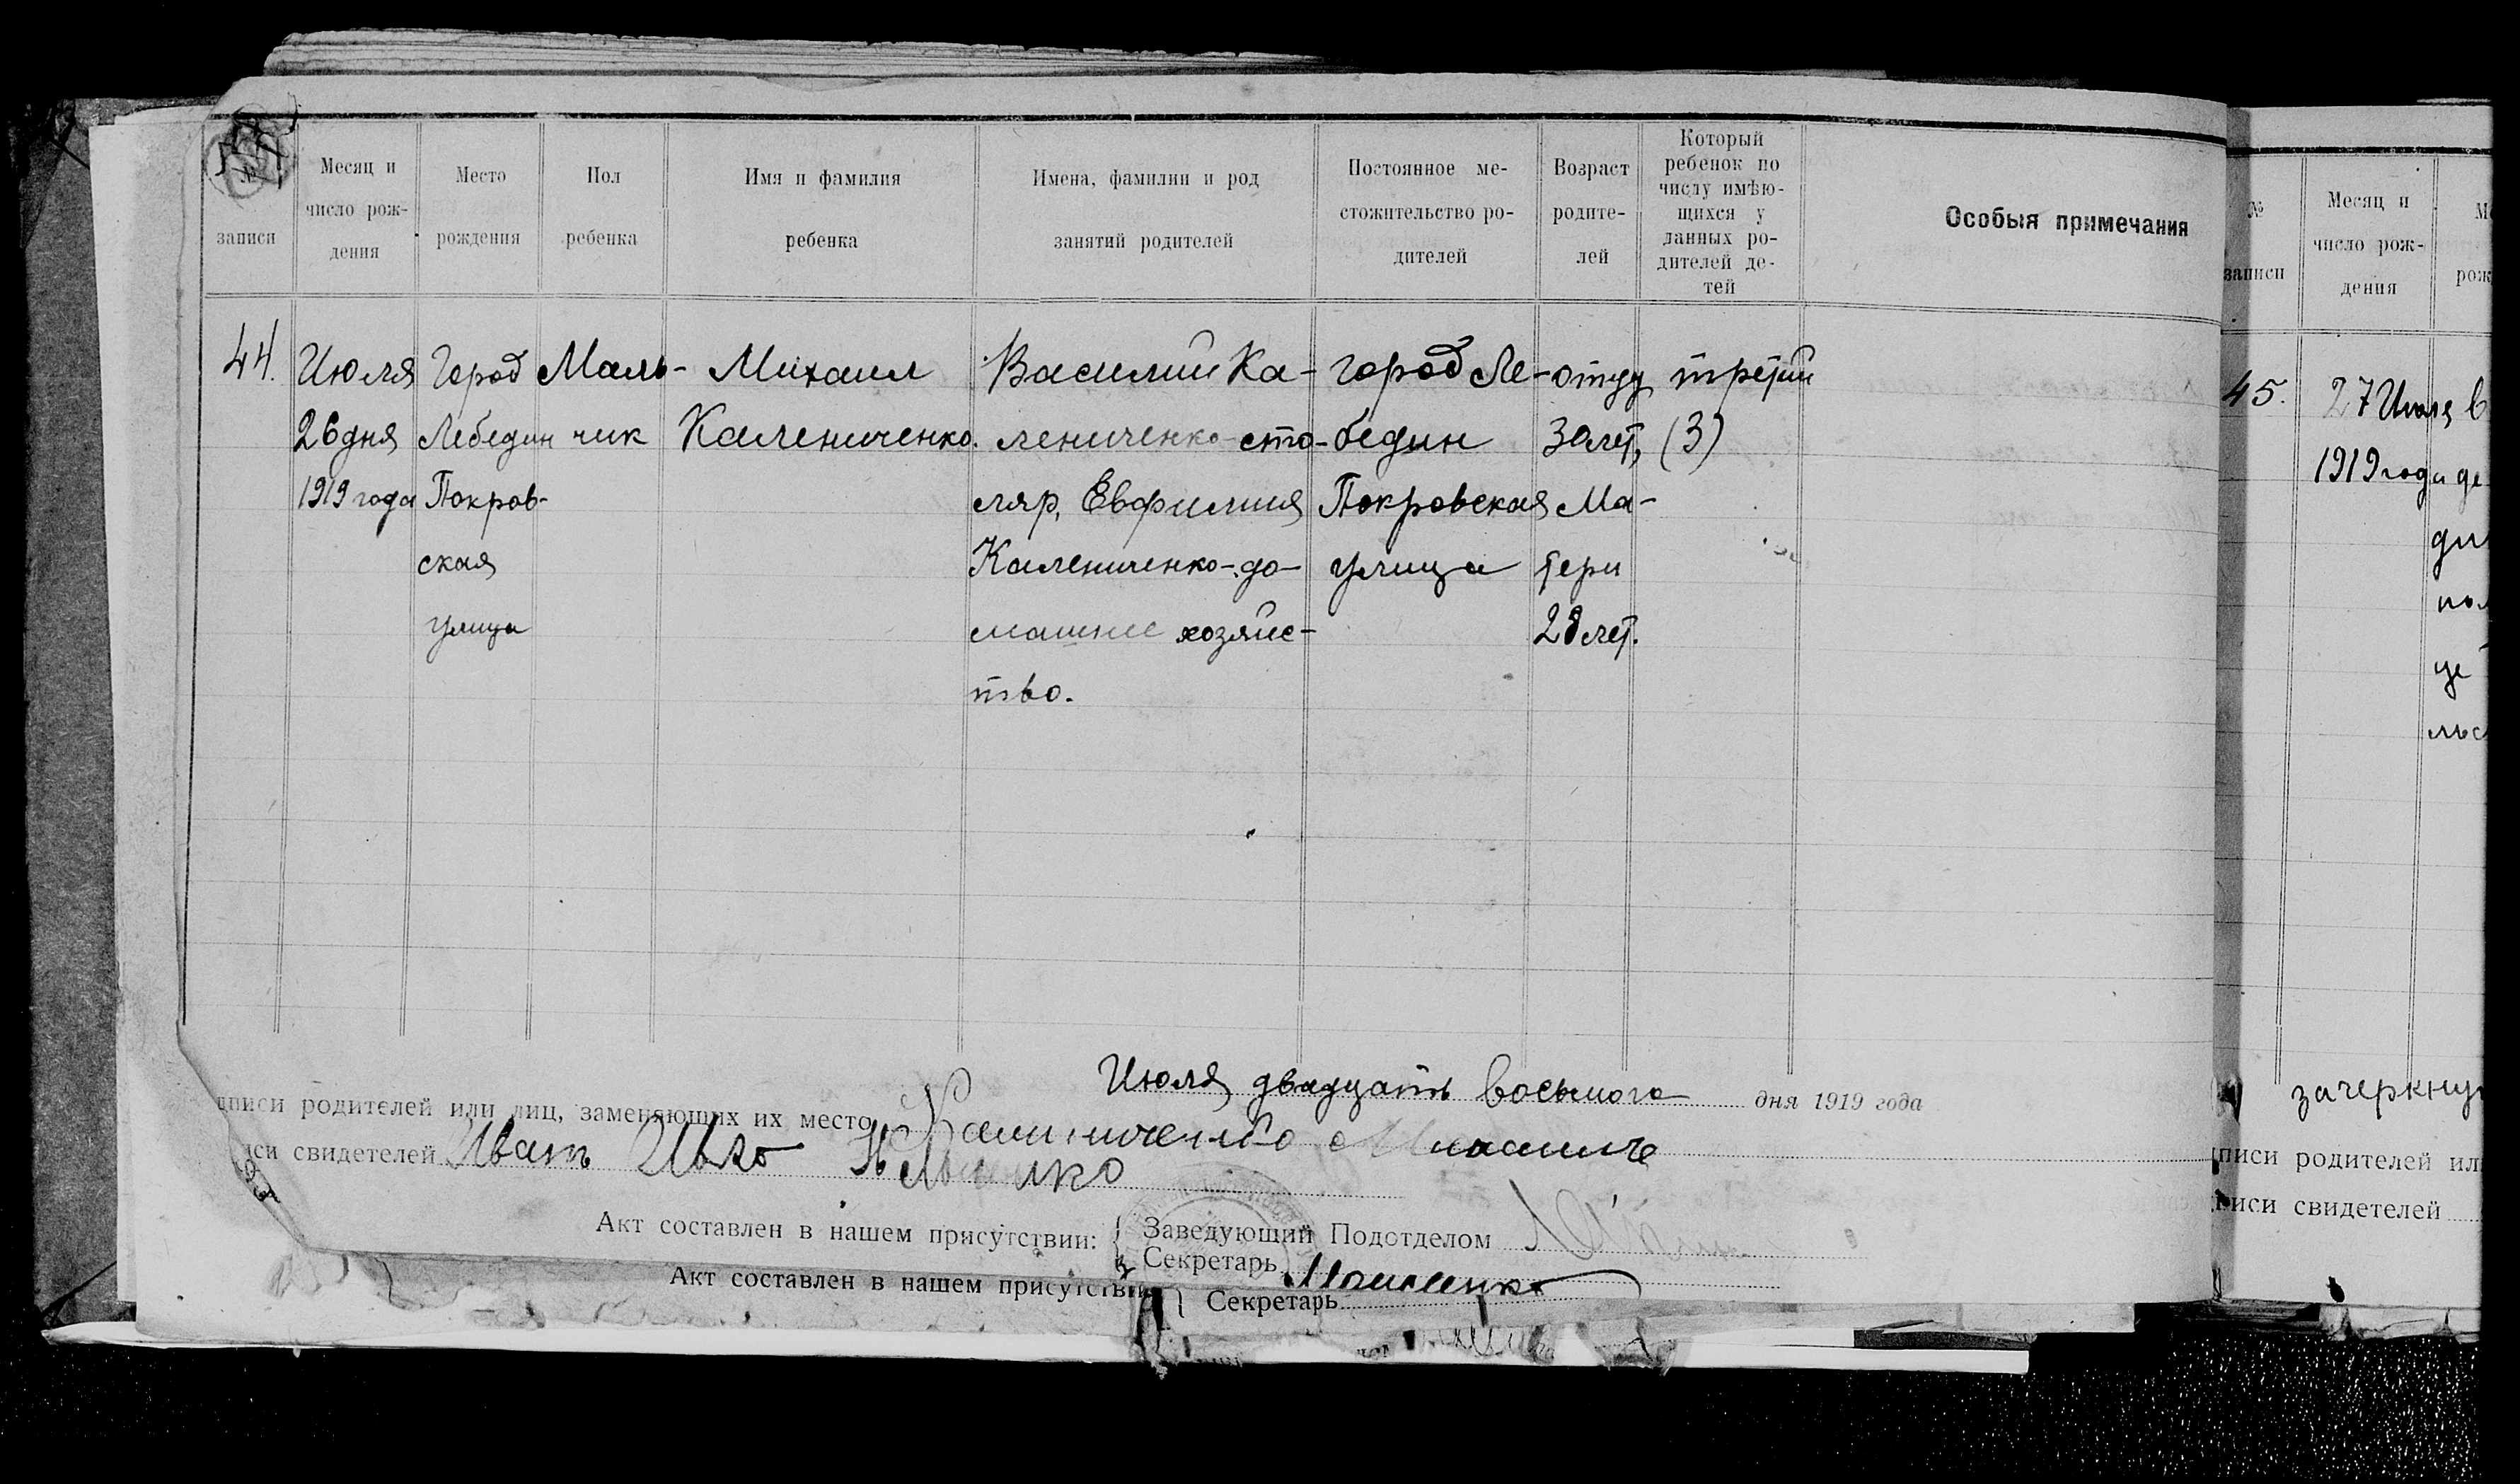 №
записи
Месяц и
число рож-
дения
Место
рождения
Пол
ребенка
Имя и фамилия
ребенка
Имена, фамилии и род
занятий родителей
Постоянное ме-
стожительство ро-
дителей
Возраст
родите-
лей
Который
ребенок по
числу имѣю-
щихся у
данных ро-
дителей де-
тей
Особыя примечания
44.
Июля
26 дня
1919 года
Город
Лебедин
Покров-
ская
улица
Маль-
чик
Михаил
Калениченко.
Василий Ка-
лениченко сто-
ляр, Евфимия
Калениченко-до-
машнее хозяйс-
тво.
город Ле-
бедин
Покровская
улица
отцу
30 лет,
Ма-
тери
28 лет.
третий
(3)
Июля двадцать восьмого дня 1919 года
дписи родителей или лиц, заменяющих их место
иси свидетелей Иван
Акт составлен в нашем присутствии:
Заведующий Подотделом
Секретарь
Акт составлен в нашем присутствии
Секретарь
№
записи
Месяц и
число рож-
дения
45.
27 Июля
1919 года
зачеркну
писи родителей ил
писи свидетелей